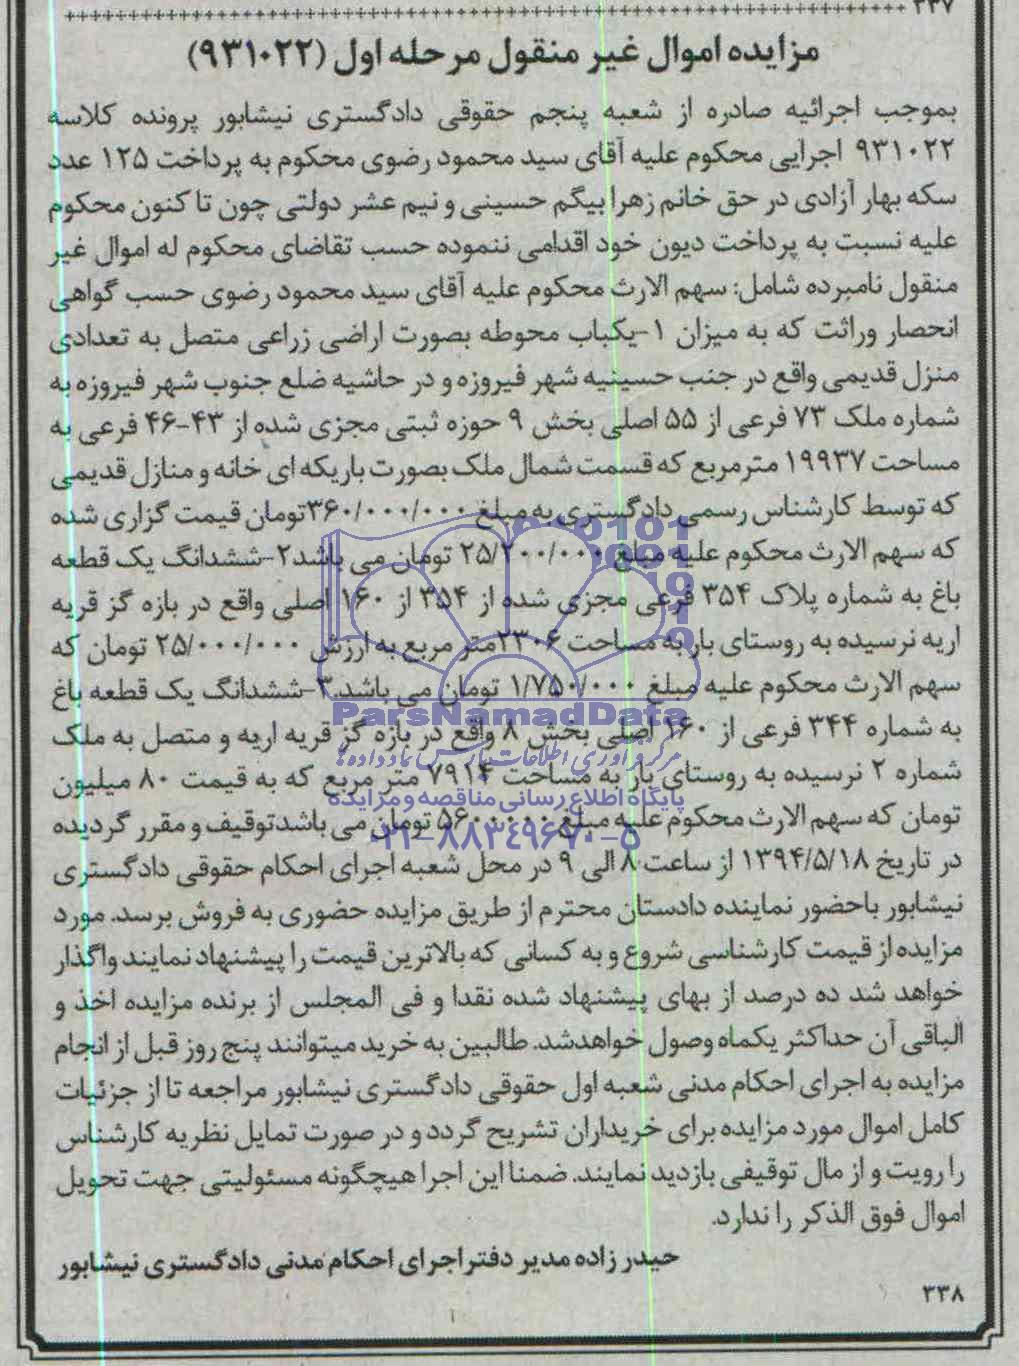 ۳۳۷
مزایده اموال غیر منقول مرحله اول (۹۳۱۰۲۲)
بموجب اجرائیه صادره از شعبه پنجم حقوقی دادگستری نیشابور پرونده کلاسه
۹۳۱۰۲۲ اجرایی محکوم علیه آقای سید محمود رضوی محکوم به پرداخت ۱۲۵ عدد
سکه بهار آزادی در حق خانم زهرا بیگم حسینی و نیم عشر دولتی چون تا کنون محکوم
علیه نسبت به پرداخت دیون خود اقدامی ننموده حسب تقاضای محکوم له اموال غیر
منقول نامبرده شامل: سهم الارث محکوم علیه آقای سید محمود رضوی حسب گواهی
انحصار وراثت که به میزان ۱-یکباب محوطه بصورت اراضی زراعی متصل به تعدادی
منزل قدیمی واقع در جنب حسینیه شهر فیروزه و در حاشیه ضلع جنوب شهر فیروزه به
شماره ملک ۷۳ فرعی از ۵۵ اصلی بخش ۹ حوزه ثبتی مجزی شده از ۴۳-۴۶ فرعی به
مساحت ۱۹۹۳۷ مترمربع که قسمت شمال ملک بصورت باریکه ای خانه و منازل قدیمی
که توسط کارشناس رسمی دادگستری به مبلغ ۳۶۰/۰۰۰/۰۰۰تومان قیمت گزاری شده
که سهم الارث محکوم علیه مبلغ ۲۵/۲۰۰/۰۰۰ تومان می باشد۲-ششدانگ یک قطعه
باغ به شماره پلاک ۳۵۴ فرعی مجزی شده از ۳۵۴ از ۱۶۰ اصلی واقع در بازه گز قریه
اریه نرسیده به روستای بار به مساحت ۲۳۰۶متر مربع به ارزش ۲۵/۰۰۰/۰۰۰ تومان که
سهم الارث محکوم علیه مبلغ ۱/۷۵۰/۰۰۰ تومان می باشد.۳-ششدانگ یک قطعه باغ
به شماره ۳۴۴ فرعی از ۱۶۰ اصلی بخش ۸ واقع در بازه گز قریه اریه و متصل به ملک
شماره ۲ نرسیده به روستای بار به مساحت ۷۹۱۴ متر مربع که به قیمت ۸۰ میلیون
تومان که سهم الارث محکوم علیه مبلغ ۵۶۰۰۰۰۰ تومان می باشدتوقیف و مقرر گردیده
در تاریخ ۱۳۹۴/۵/۱۸ از ساعت ۸ الی ۹ در محل شعبه اجرای احکام حقوقی دادگستری
نیشابور باحضور نماینده دادستان محترم از طریق مزایده حضوری به فروش برسد. مورد
مزایده از قیمت کارشناسی شروع و به کسانی که بالاترین قیمت را پیشنهاد نمایند واگذار
خواهد شد ده درصد از بهای پیشنهاد شده نقدا و فی المجلس از برنده مزایده اخذ و
الباقی آن حداکثر یکماه وصول خواهدشد. طالبین به خرید میتوانند پنج روز قبل از انجام
مزایده به اجرای احکام مدنی شعبه اول حقوقی دادگستری نیشابور مراجعه تا از جزئیات
کامل اموال مورد مزایده برای خریداران تشریح گردد و در صورت تمایل نظریه کارشناس
را رویت و از مال توقیفی بازدید نمایند. ضمنا این اجرا هیچگونه مسئولیتی جهت تحویل
اموال فوق الذکر را ندارد.
حیدر زاده مدیر دفتر اجرای احکام مدنی دادگستری نیشابور
۳۳۸
ParsNamadData
مرکز فرآوری اطلاعات پارس نماد داده ها
پایگاه اطلاع رسانی مناقصه و مزایده
۰۲۱-۸۸۳۴۹۶۷۰-۵